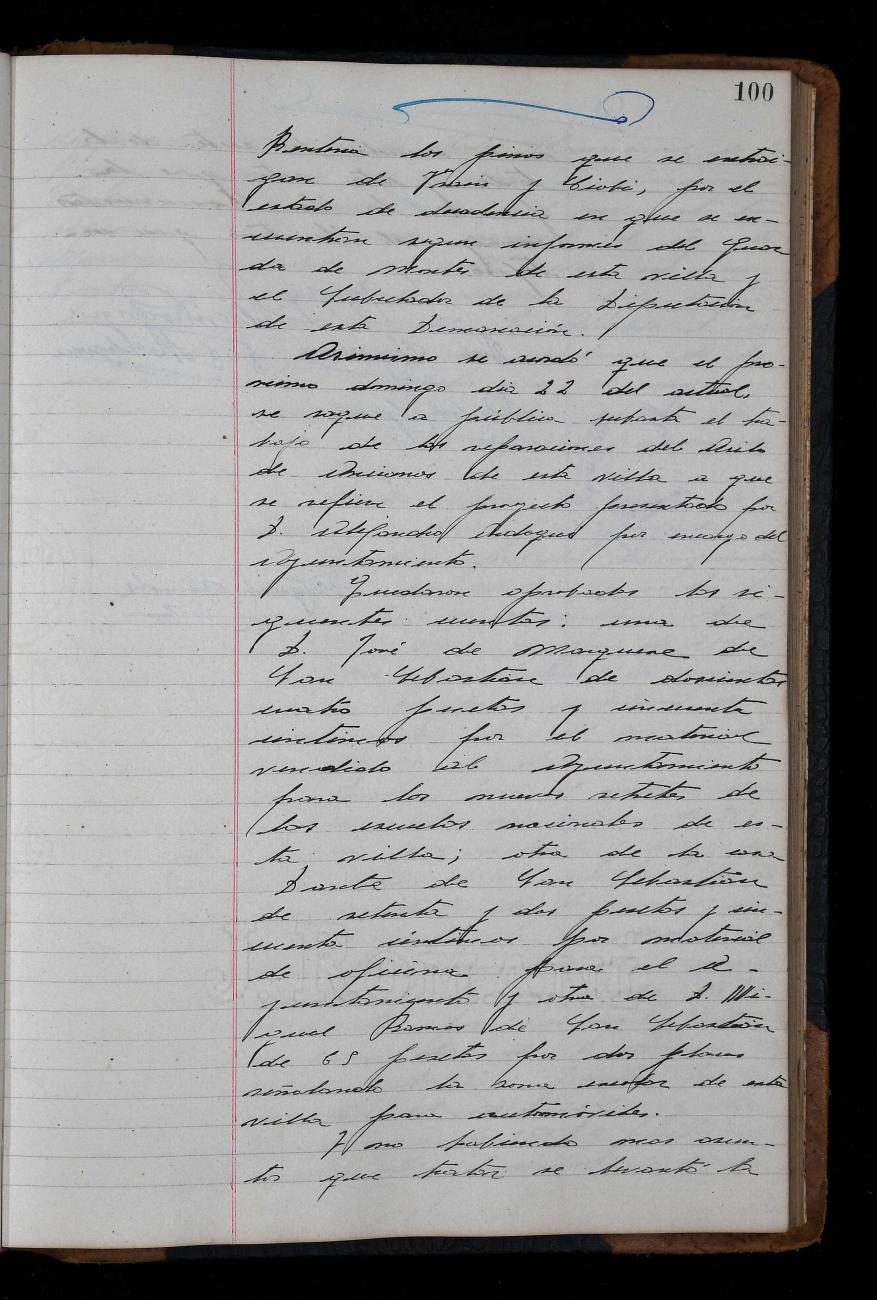 100
Renteria los pinos que se extrai-
gan de       y       , por el
estado de decadencia en que se en-
cuentran segun informes del Guar
da de Montes de esta villa y
el Sobrestante de la Diputación
de esta Demarcación.
Asimismo se acordó que el pro-
ximo domingo dia 22 del actual,
se saque a pública subasta el tra-
bajo de las reparaciones del Asilo
de Ancianos de esta villa a que
se refiere el proyecto presentado por
D. Alejandro        por encargo del
Ayuntamiento.
Quedaron aprobadas las si-
guientes cuentas: una de
D. José de        de
San Sebastián de doscientas
cuatro pesetas y cincuenta
céntimos por el material
vendido al Ayuntamiento
para los nuevos retretes de
las escuelas nacionales de es-
ta villa; otra de la casa
       de San Sebastián
de setenta y dos pesetas y cin-
cuenta céntimos por material
de oficina para el A-
yuntamiento y otra de D. Mi-
guel Ramos de San Sebastián
de 65 pesetas por dos placas
señalando la zona       de esta
villa para automóviles.
Y no habiendo mas asun-
tos que tratar se levantó la